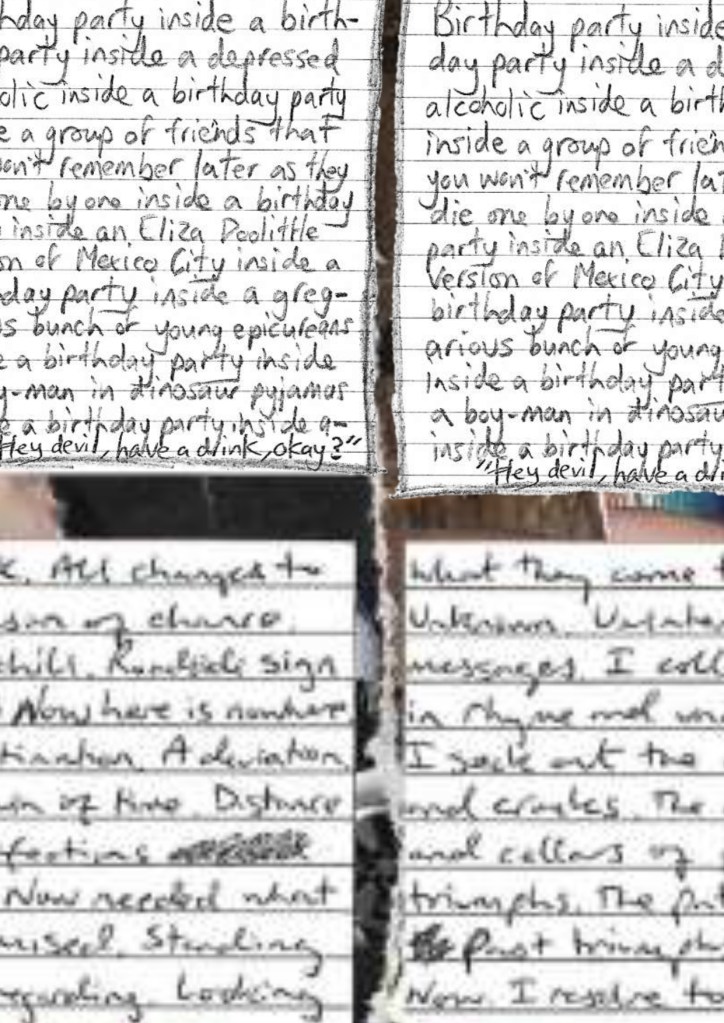 hday party inside a birth-
party inside a depressed
olic inside a birthday party
e a group of friends that
won't remember later as they
ne by one inside a birthday
inside an Eliza Doolittle
on of Mexico City inside a
day party inside a greg-
s bunch of young epicureans
e a birthday party inside
y-man in dinosaur pyjamas
e a birthday party inside a-
Hey devil, have a drink, okay?"
Birthday party inside
day party inside a d
alcoholic inside a birth
inside a group of frien
you won't remember lat
die one by one inside
party inside an Eliza
version of Mexico City
birthday party inside
arious bunch of young
inside a birthday part
a boy-man in dinosau
inside a birthday party
"Hey devil, have a dri
All changes to
of chance.
sign
Now here is nowhere
A deviation
of time. Distance
Now needed what
Standing
Looking
What they come t
Unknown.
messages. I coll
in rhyme and
I seek out the
and crashes. The
and cellars of
triumphs. The
past triumph
Now. I resolve to